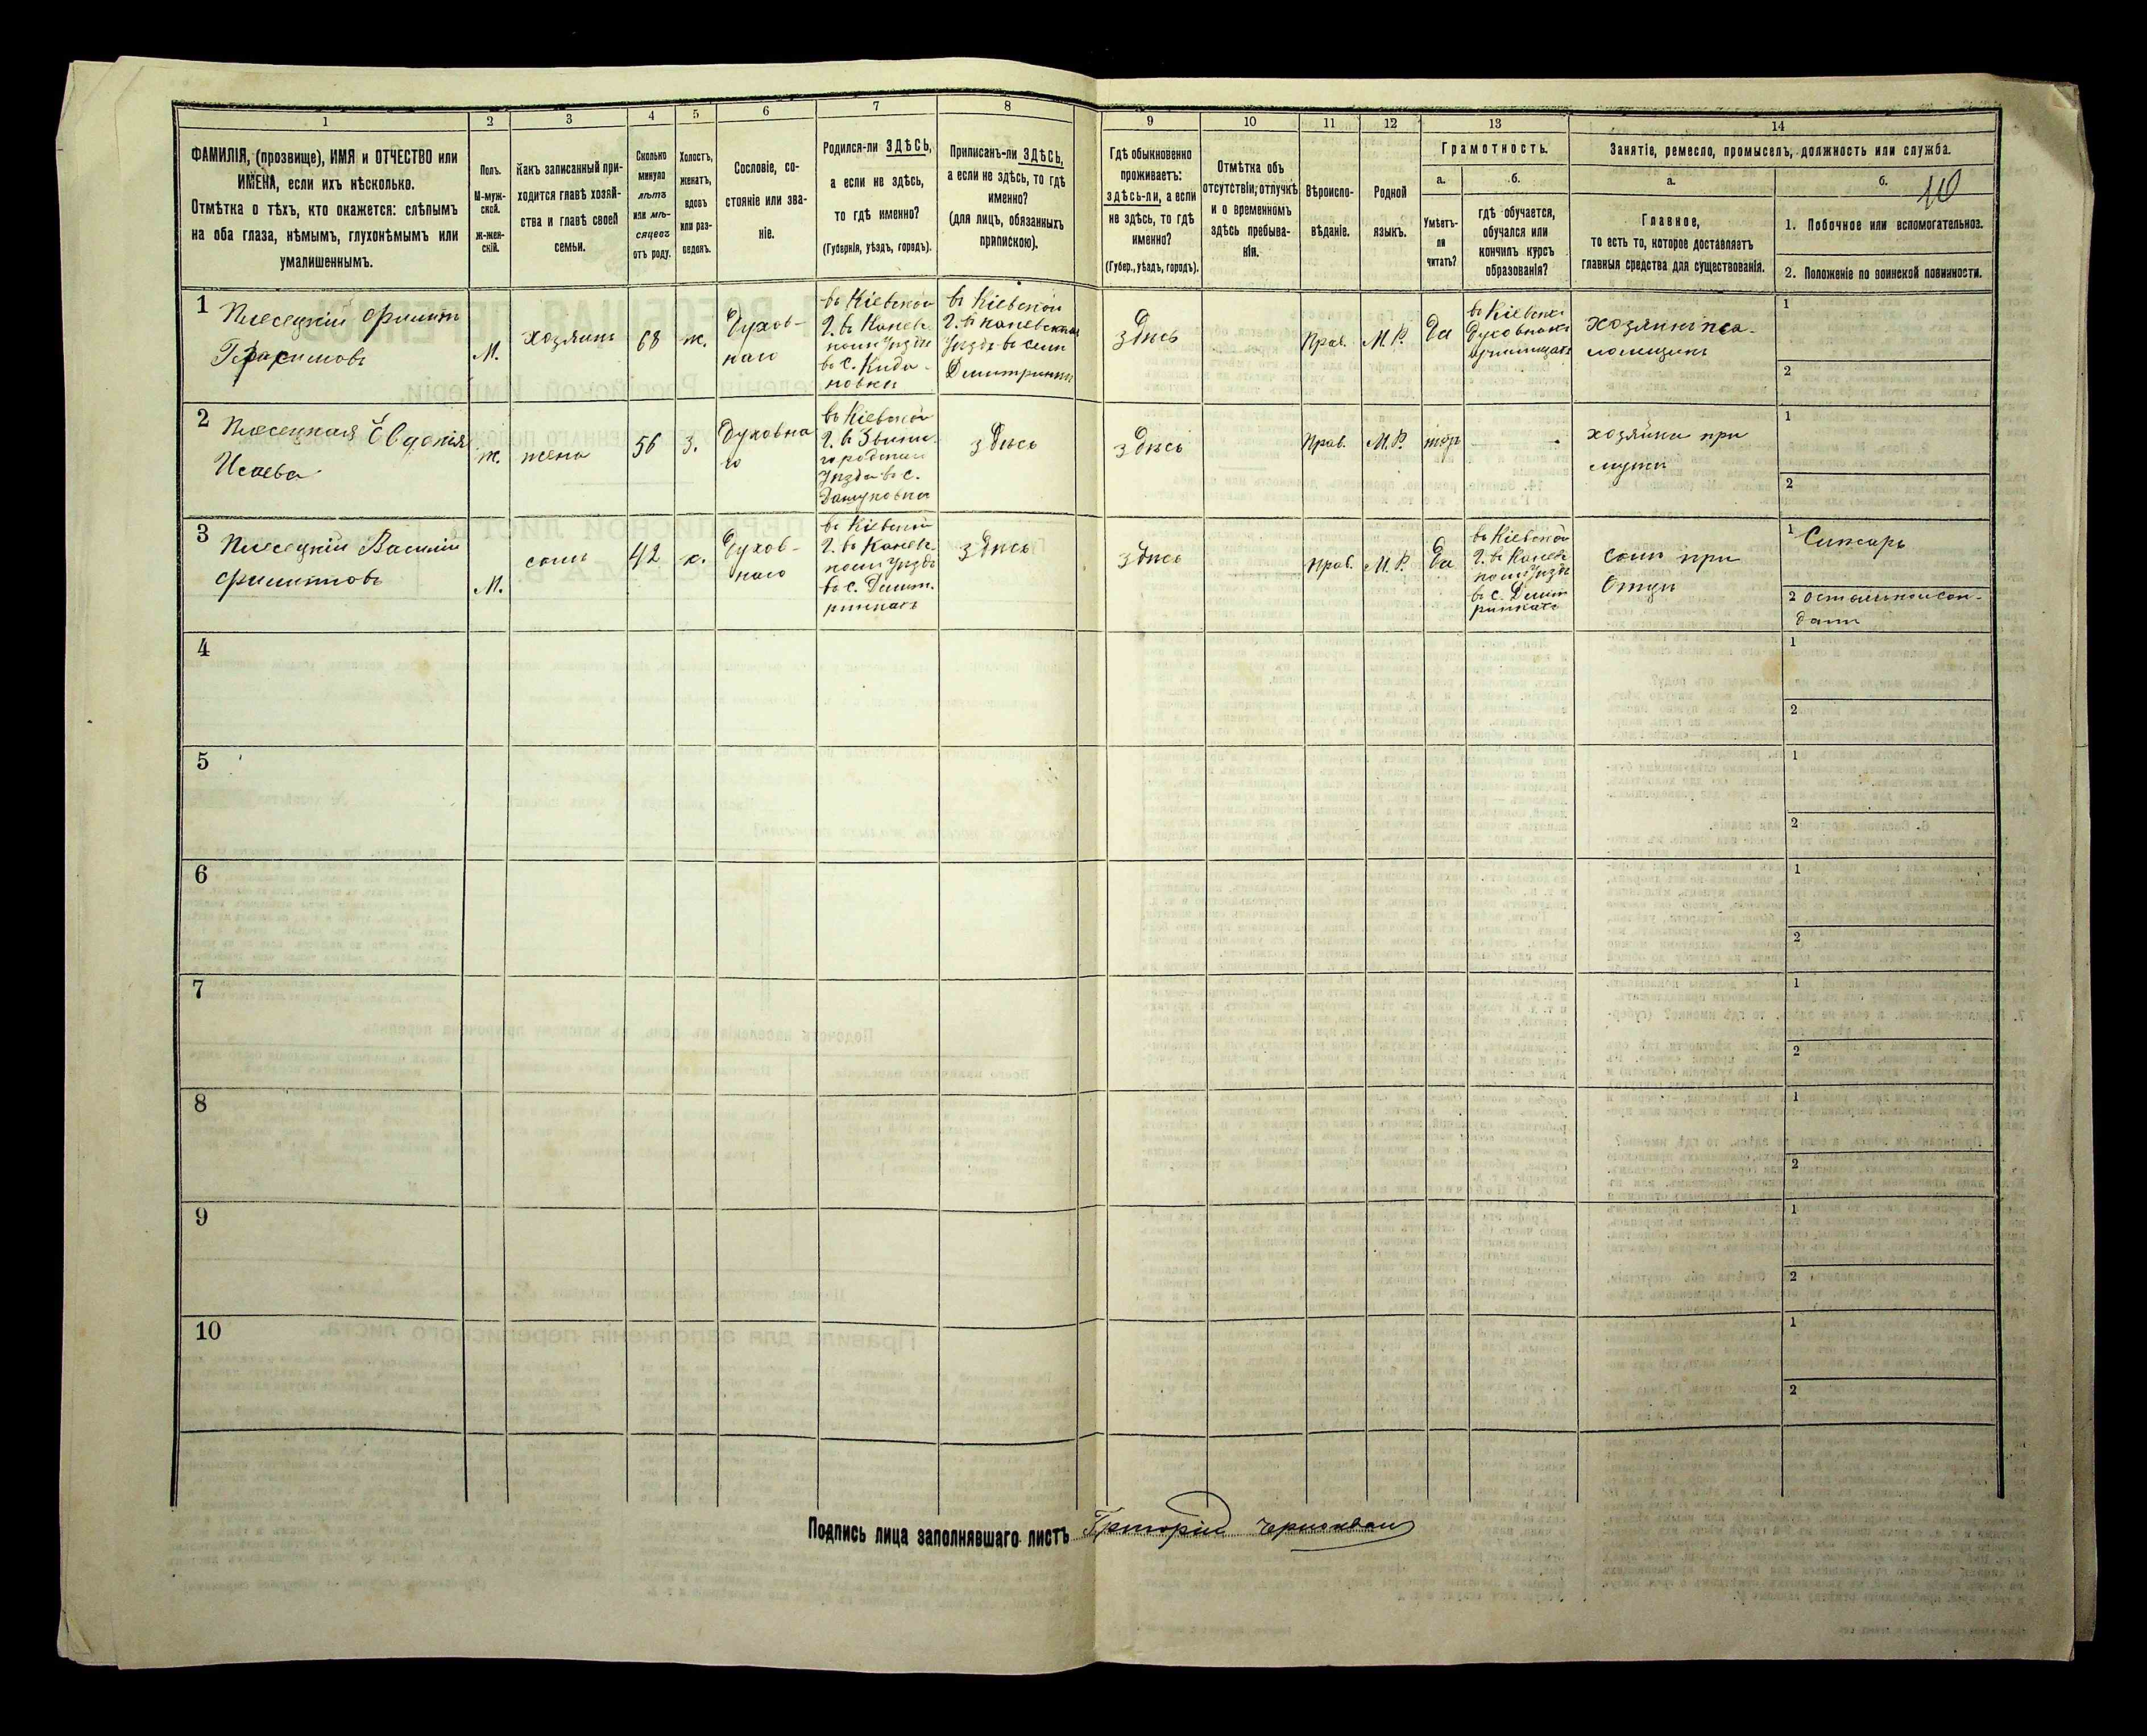 1
2
3
4
5
6
7
8
9
10
11
12
13
14
ФАМИЛІЯ, (прозвище), ИМЯ и ОТЧЕСТВО или
ИМЕНА, если ихъ нѣсколько.
Отмѣтка о тѣхъ, кто окажется: слѣпымъ
на оба глаза, нѣмымъ, глухонѣмымъ или
умалишеннымъ.
Полъ.
М-муж-
ской.
ж-жен-
скій.
Какъ записанный при-
ходится главѣ хозяй-
ства и главѣ своей
семьи.
Сколько
минуло
лѣтъ
или мѣ-
сяцевъ
отъ роду.
Холостъ,
женатъ,
вдовъ
или раз-
веденъ.
Сословіе, со-
стояніе или зва-
ніе.
Родился-ли ЗДѢСЬ,
а если не здѣсь,
то гдѣ именно?
(Губернія, уѣздъ, городъ).
Приписанъ-ли ЗДѢСЬ,
а если не здѣсь, то гдѣ
именно?
(для лицъ, обязанныхъ
припискою).
Гдѣ обыкновенно
проживаетъ:
здѣсь-ли, а если
не здѣсь, то гдѣ
именно?
(Губер., уѣздъ, городъ).
Отмѣтка объ
отсутствіи, отлучкѣ
и о временномъ
здѣсь пребыва-
ніи.
Вѣроиспо-
вѣданіе.
Родной
языкъ.
Грамотность.
а.
Умѣетъ-
ли
читать?
б.
гдѣ обучается,
обучался или
кончилъ курсъ
образованія?
Занятіе, ремесло, промыселъ, должность или служба.
а.
Главное,
то есть то, которое доставляетъ
главныя средства для существованія.
б.
1. Побочное или вспомогательноз.
2. Положеніе по воинской повинности.
1
Плесецкій Филипъ
Герасимовъ
М.
хозяинъ
68
ж.
Духов-
наго
въ Кіевской
Г. въ Канев-
комъ Уѣздѣ
въ С.
новки
въ Кіевской
Г. въ Каневскомъ
Уѣздѣ въ селѣ
здѣсь
Прав.
М.Р.
Да
въ Кіевско
Духовномъ
училищѣ
хозяинъ пса-
ломщикъ
1
2
2
Плесецкая Евдокія
Исаева
ж.
жена
56
З.
Духовна
го
въ Кіевской
Г. въ Звени-
городскомъ
Уѣздѣ въ с.
здѣсь
здѣсь
Прав.
М.Р.
хозяйка при
мужи
1
2
3
Плесецкій Василій
Филиповъ
М.
сынъ
42
х.
Духов-
наго
въ Кіевской
Г. въ Канев-
комъ Уѣздѣ
въ с. Дмит-
ринкахъ
здѣсь
здѣсь
прав.
М.Р.
Да
въ Кіевской
Г. въ Канев
комъ Уѣздѣ
въ с. Дмит
ринкахъ
сынъ при
Отцѣ
1
2
4
1
2
5
1
2
6
1
2
7
1
2
8
1
2
9
1
2
10
1
2
Подпись лица заполнявшаго листъ Григорій